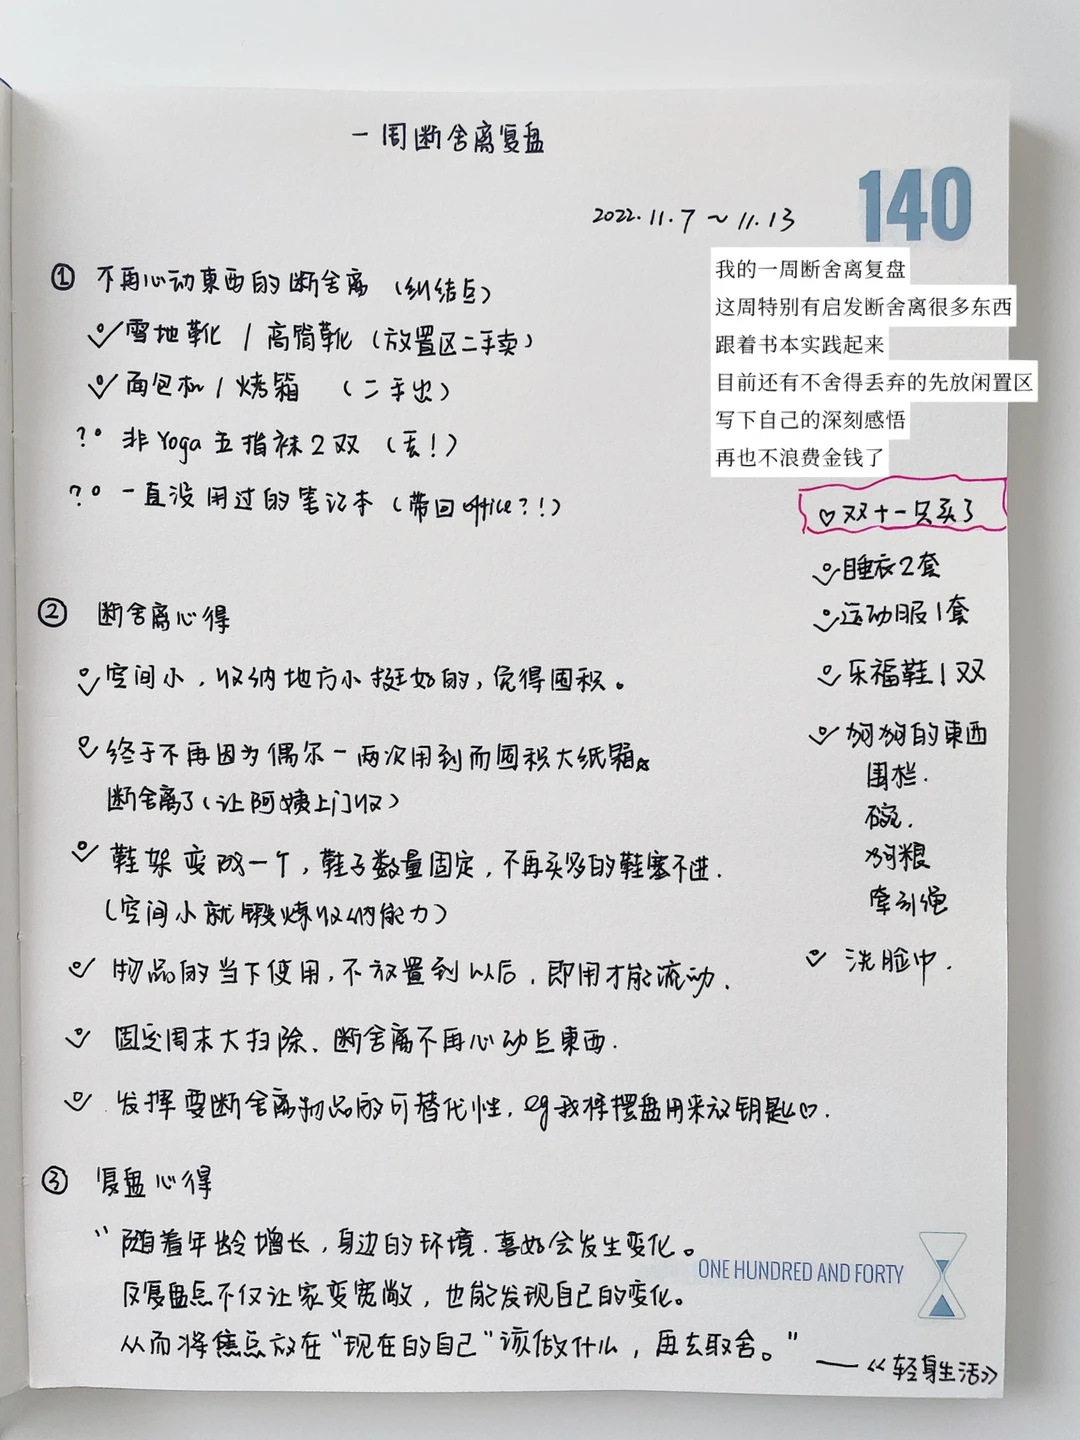 一周断舍离复盘
2022.11.7~11.13
140
我的一周断舍离复盘
这周特别有启发断舍离很多东西
跟着书本实践起来
目前还有不舍得丢弃的先放闲置区
写下自己的深刻感悟
再也不浪费金钱了
① 不再心动東西的断舍离（纠结点）
雪地靴 / 高筒靴（放置区二手卖）
面包机 / 烤箱 （二手出）
?° 非Yoga五指袜2双（丢！）
?° 一直没用过的笔记本（带回office?!）
♡双十一只买了
睡衣2套
运动服1套
乐福鞋1双
狗狗的東西
围栏.
碗.
狗粮
牵引绳
洗脸巾.
② 断舍离心得
空间小，收纳地方小挺好的，免得囤积。
终于不再因为偶尔一两次用到而囤积大纸箱
断舍离了（让阿姨上门收）
鞋架变成一个，鞋子数量固定，不再买多的鞋塞不进.
（空间小就锻炼收纳能力）
物品的当下使用，不放置到以后，即用才能流动.
固定周末大扫除、断舍离不再心动点東西.
发挥要断舍离物品的可替代性，eg我将摆盘用来放钥匙♡.
③ 复盘心得
“随着年龄增长，身边的环境.喜好会发生变化。
反复盘点不仅让家变宽敞，也能发现自己的变化。
从而将焦点放在“现在的自己”该做什么，再去取舍。”
——《轻身生活》
ONE HUNDRED AND FORTY